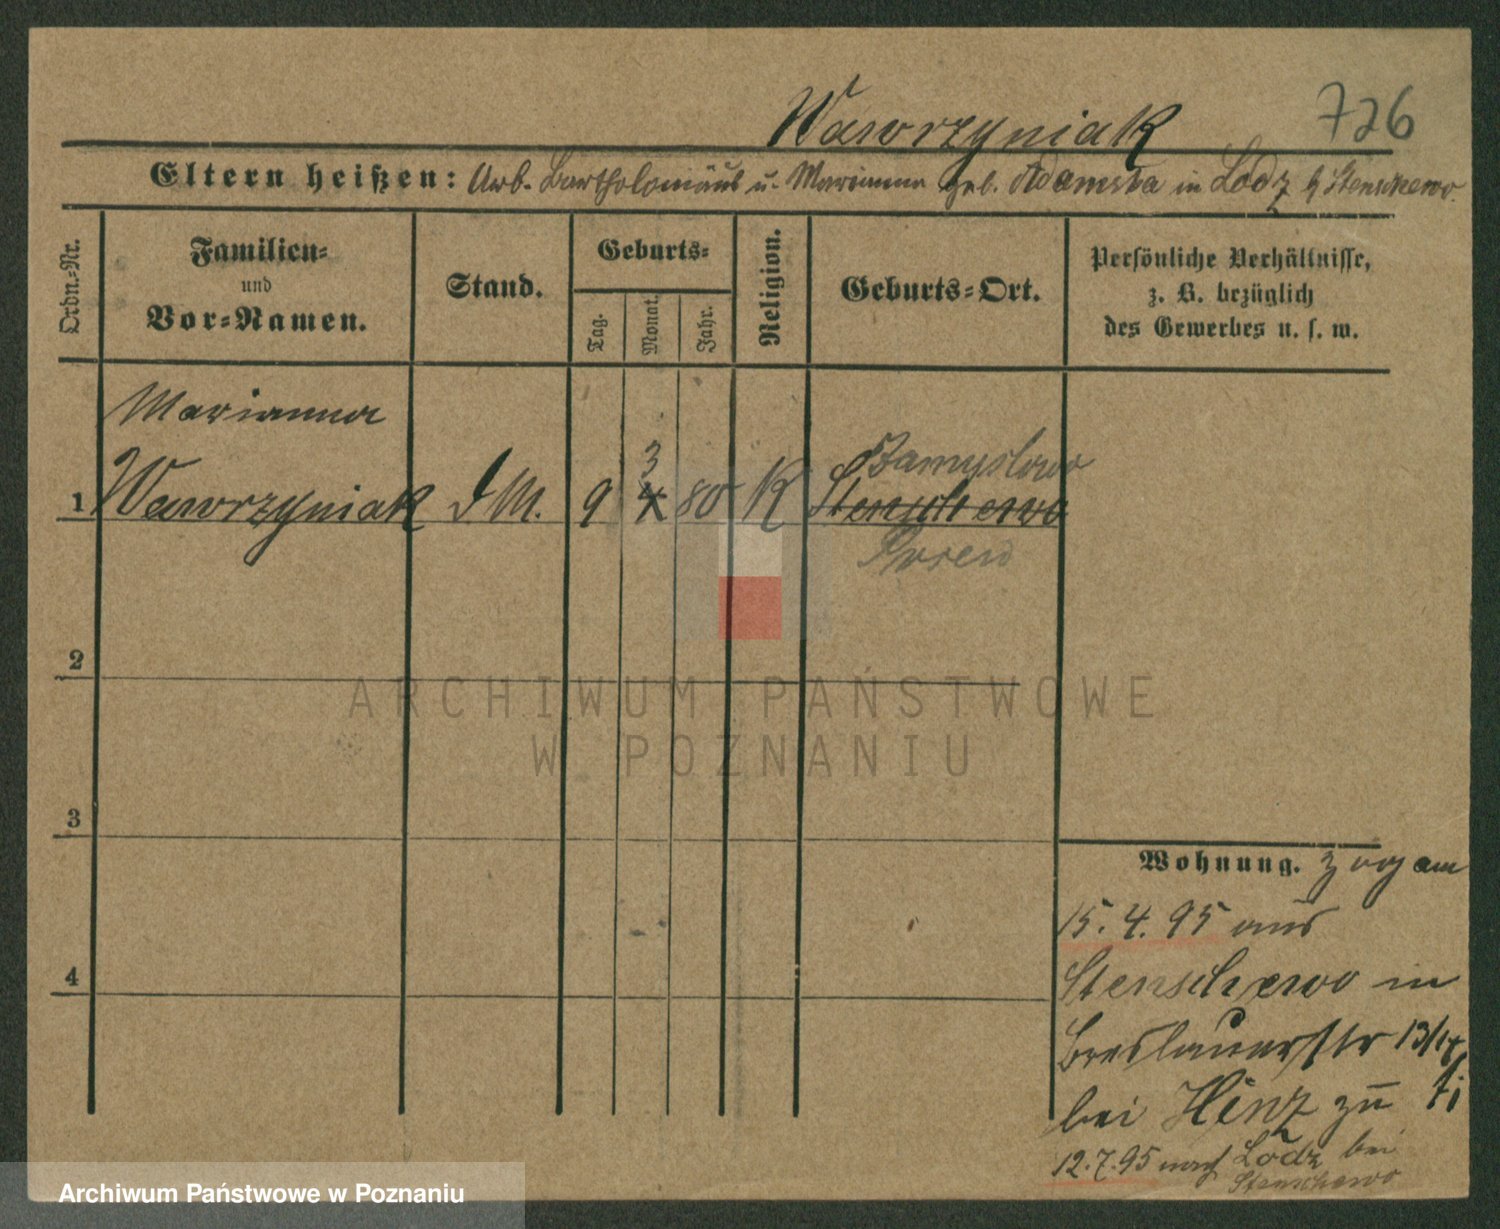 Wawrzyniak 726
Eltern heißen: Arb. Bartholomäus u. Marianna geb. Adamska in Lodz b Stenschewo.
Ordn.-Nr.
Familien-
und
Vor-Namen.
Stand.
Geburts-
Tag. Monat. Jahr.
Religion.
Geburts-Ort.
Persönliche Verhältnisse,
z. B. bezüglich
des Gewerbes u. s. w.
Marianna
3 Zamyslowo
1 Wawrzyniak d. M. 9 4 80 K Stenschewo
Posen
2
3
4
Wohnung. zog am
15. 4. 95 aus
Stenschewo in
Breslauerstr 13/14
bei Hinz zu
12.7.95 nach Lodz bei
Stenschewo
ARCHIWUM PAŃSTWOWE
W POZNANIU
Archiwum Państwowe w Poznaniu